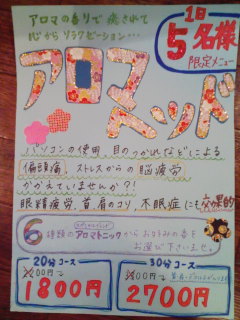 アロマの香りで癒されて
心からリラクゼーション…
1日
5名様
限定メニュー
アロマヘッド
パソコンの使用、目のつかれなどによる
偏頭痛、ストレスからの脳疲労
かかえていませんか?!
眼精疲労、首、肩のコリ、不眠症にも効果的
6種類のアロマトニックからお好みの香を
お選び下さいませ。
20分コース
1800円
30分コース
2700円